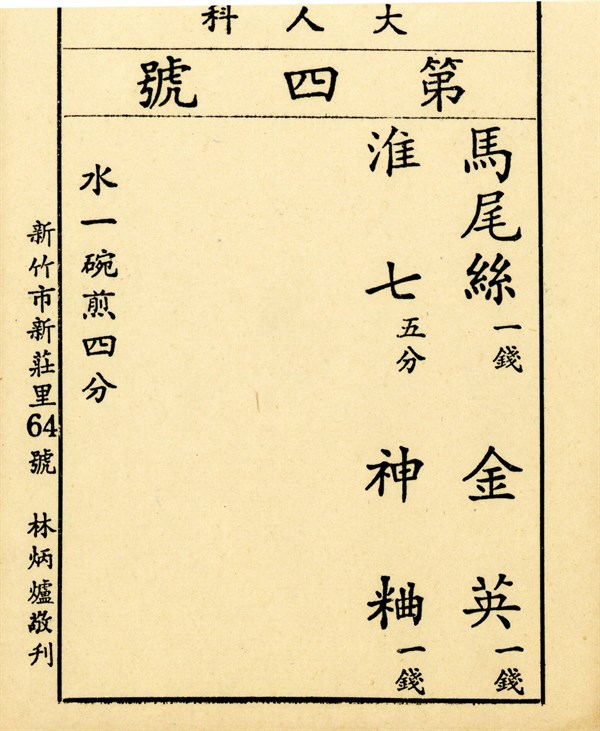 大人科
第四號
馬尾絲一錢 金英一錢
淮七五分 神粬一錢
水一碗煎四分
新竹市新莊里64號 林炳爐敬刋